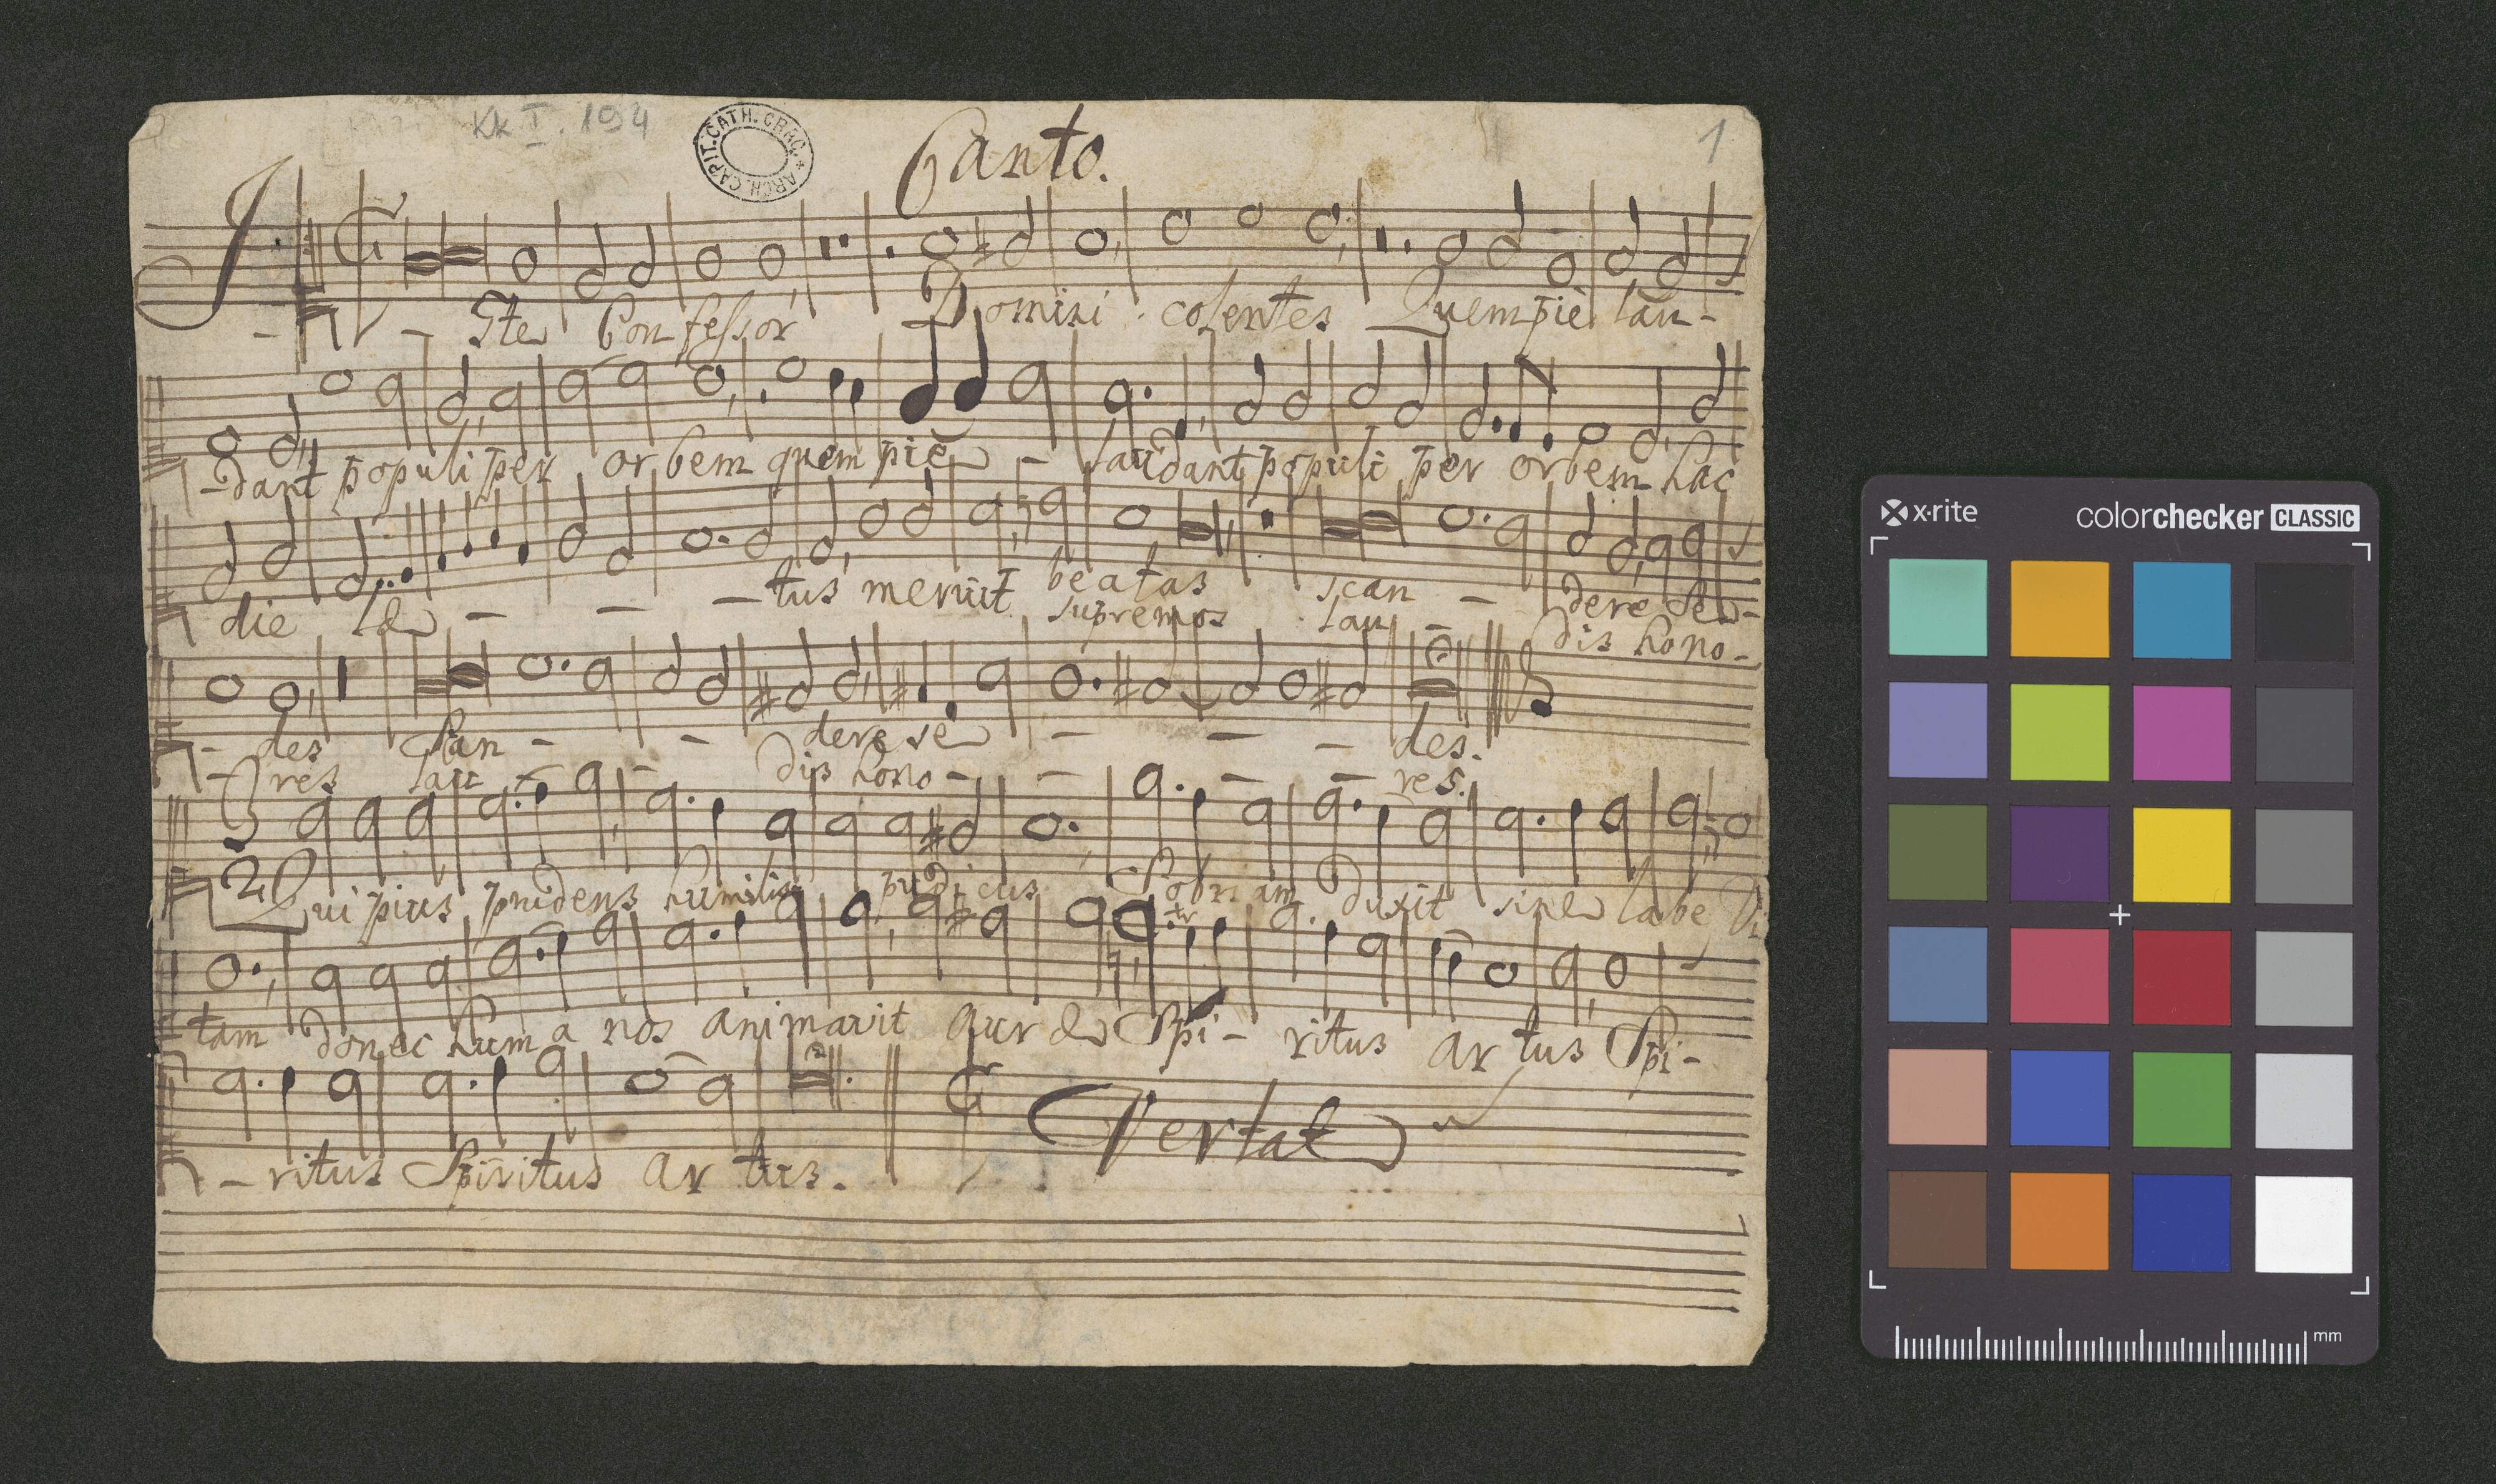 Kk I. 194
ARCH. CAPIT. CATH. CRAC.
Canto.
1
J - - Ste Confessor Domini colentes Quem piè lau-
-dant populi per orbem quem piè - laudant populi per orbem hac
die læ - - - tus meruit beatas scan - dere se-
supremos lau - dis hono-
- des Scan - - dere se - - - des.
- res lau - - dis hono - - - - res.
2 Qui pius prudens humilis pudicus Sobriam duxit sine labe Vi
tam donec humanos animavit auræ Spi- ritus artus Spi-
- ritus Spiritus artus.
Vertat
x·rite
colorchecker CLASSIC
mm